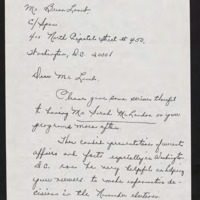 Mr. Brian Lamb
C/Span
400 North Capitol Street # 450
Washington, D.C. 20001
Dear Mr. Lamb,
Please give some serious thought
to having Ms Sarah McLendon on your
programs more often.
Her candid presentation of current
affairs and facts especially in Washington,
D.C. can be very helpful in helping
your viewers to make informative de-
cisions in the November elections.